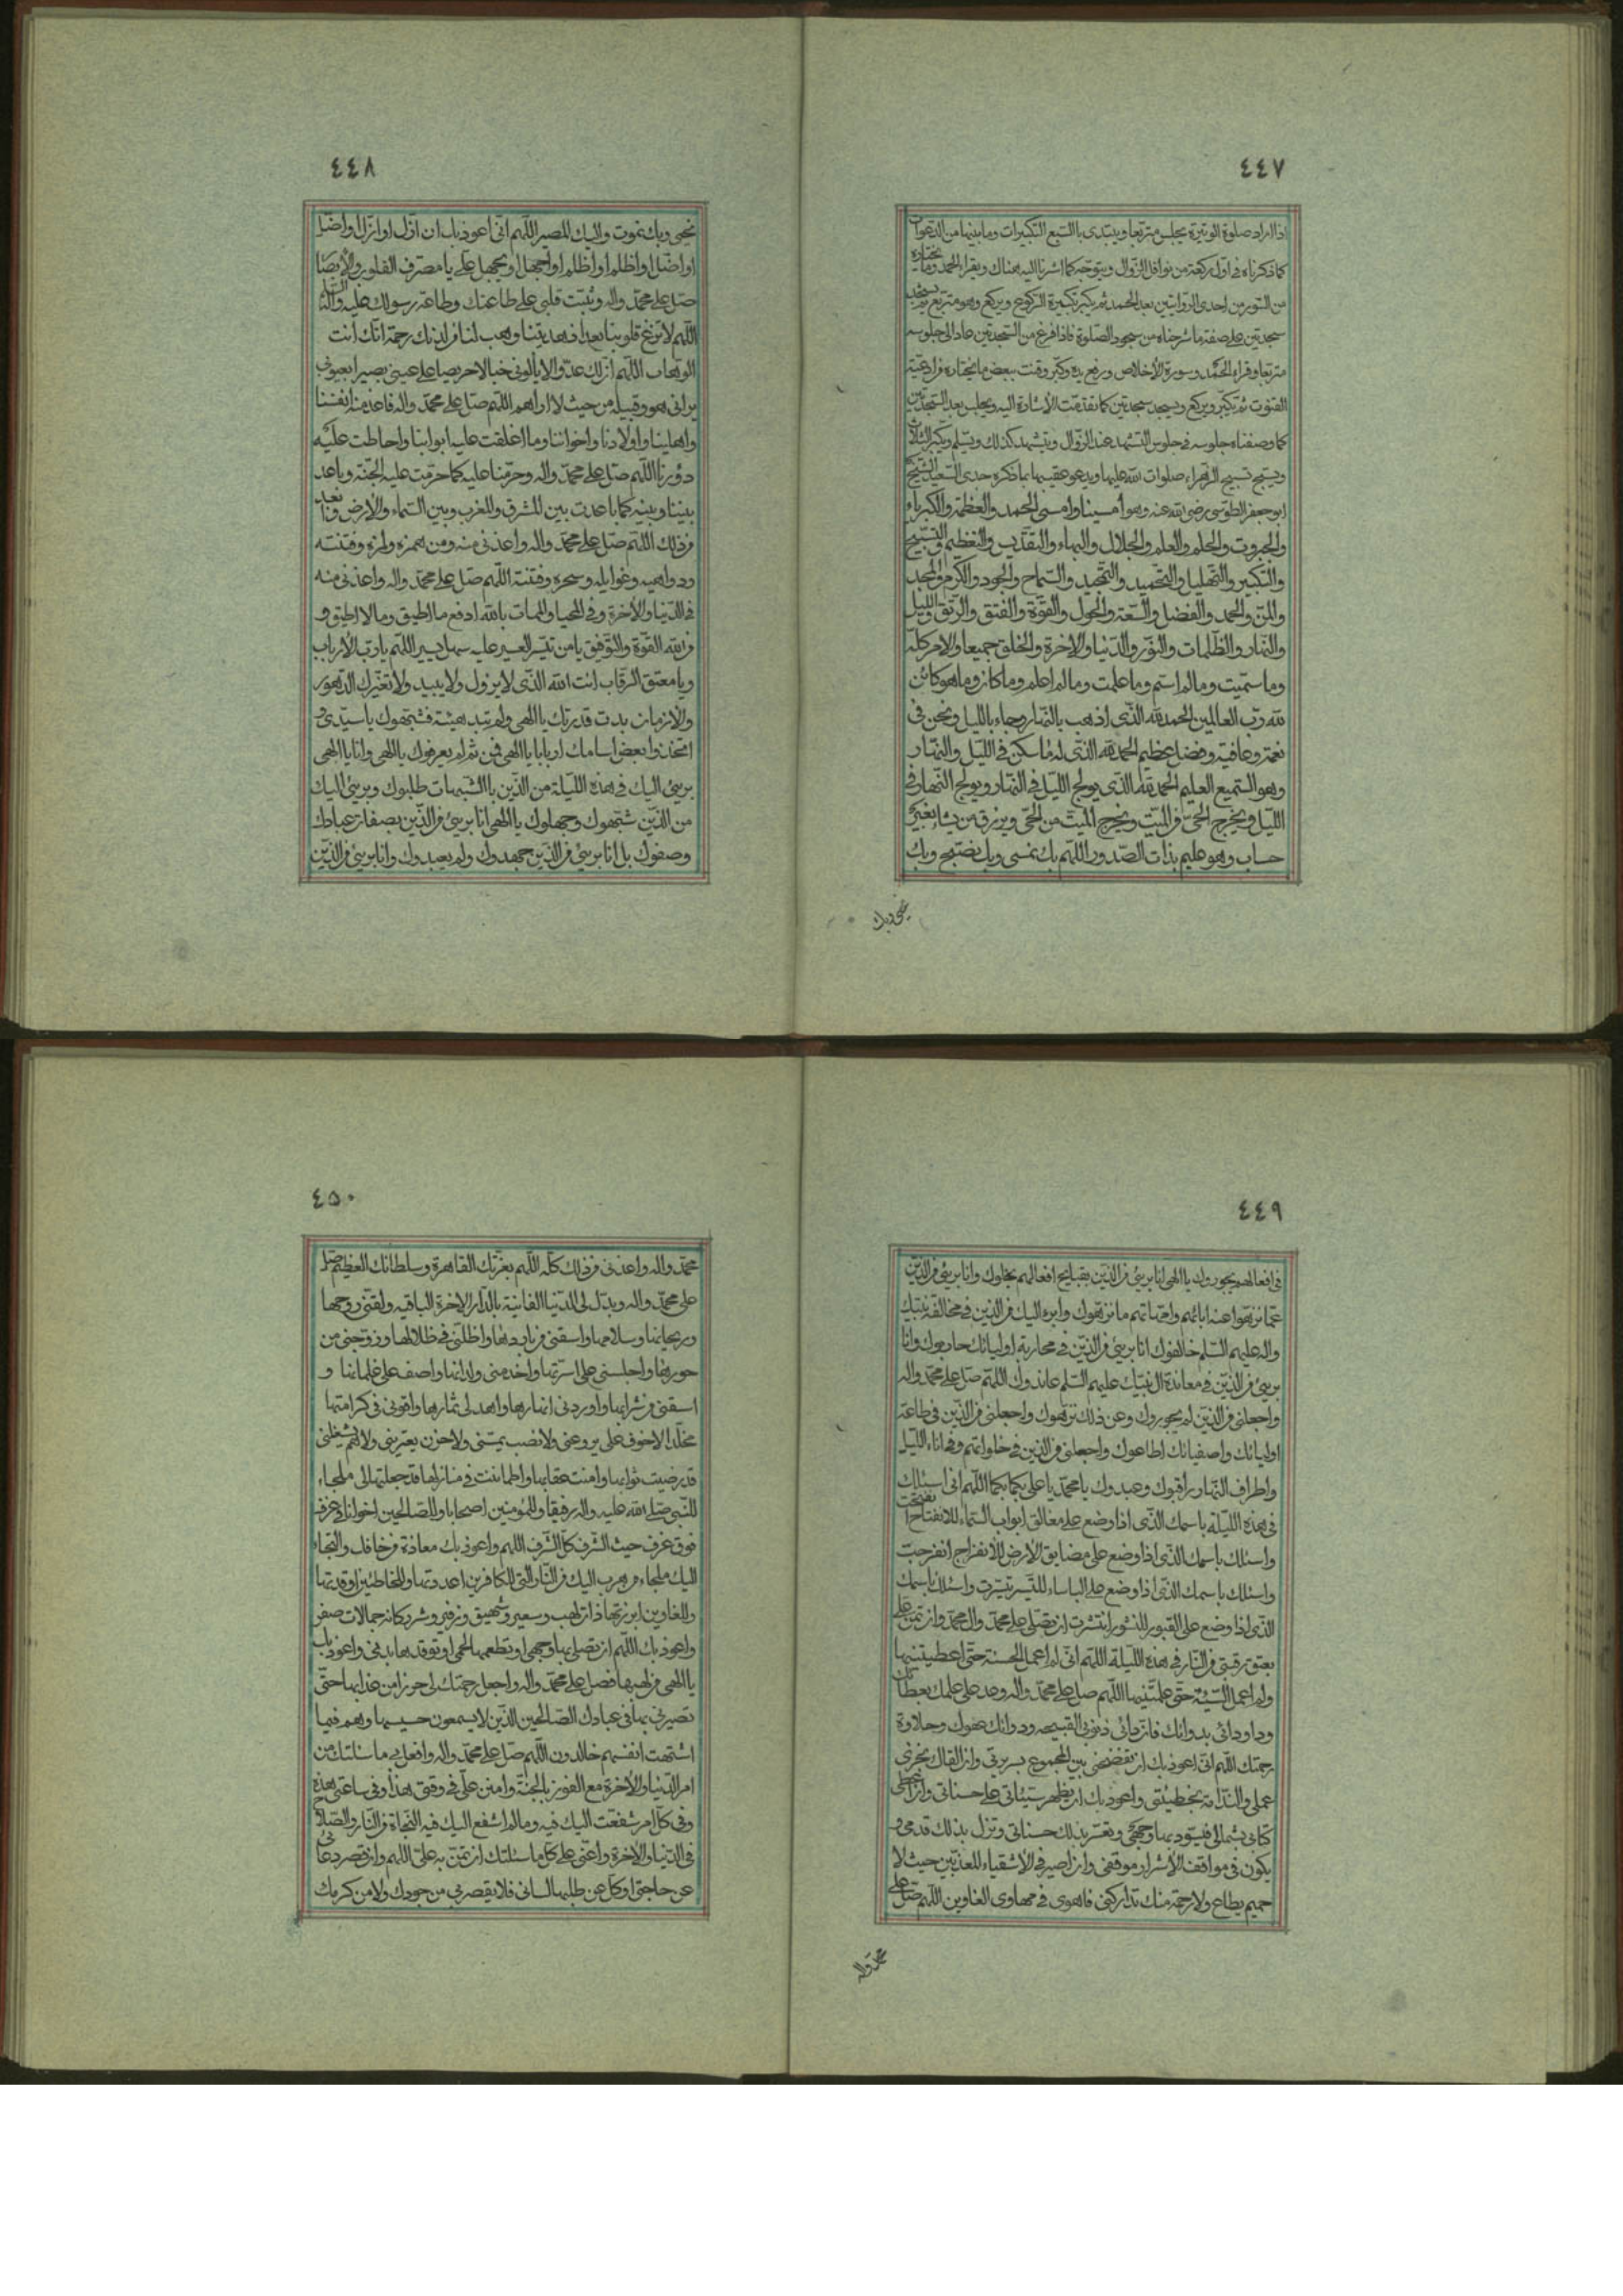 ٤٤٧
اذا اراد صلوة الوتيرة يجلس متربعا ويبتدى بالسبع التكبيرات وما بينها من الدعوات
كما ذكرناه فى اول ركعة من نوافل الزوال ويتوجه كما اشرنا اليه هناك ويقراء الحمد وما يختاره
من السور من احدى الروايتين بعد الحمد ثم يكبر تكبيرة الركوع ويركع وهو متربع ويسجد
سجدتين على صفة ما شرحناه من سجود الصلوة فاذا فرغ من السجدتين عاد الى جلوسه
متربعا وقراء الحمد وسورة الأخلاص ورفع يده وكبر وقنت ببعض ما يختاره من ادعية
القنوت ثم يكبر ويركع ويسجد سجدتين كما تقدمت الأشارة اليه ويجلس بعد السجدتين
كما وصفناه جلوسه فى جلوس التشهد عند الزوال ويتشهد كذلك ويسلم ويكبر الثلاث
ويسبح تسبيح الزهراء صلوات الله عليها ويدعو عقيبها بما ذكره جدى السعيد الشيخ
ابو جعفر الطوسى رضى الله عنه وهو أمسينا وامسى الحمد والعظمة والكبرياء
والجبروت والحلم والعلم والجلال والبهاء والتقديس والتعظيم والتسبيح
والتكبير والتهليل والتحميد والتمجيد والسماح والجود والكرم والمجد
والمن والحمد والفضل والسعة والحول والقوة والفتق والرتق والليل
والنهار والظلمات والنور والدنيا والاخرة والخلق جميعا والامر كله
وما سميت وما لم اسم وما علمت وما لم اعلم وما كان وما هو كائن
لله رب العالمين الحمد لله الذى اذهب بالنهار وجاء بالليل ونحن فى
نعمة وعافية وفضل عظيم الحمد لله الذى له ما سكن فى الليل والنهار
وهو السميع العليم الحمد لله الذى يولج الليل فى النهار ويولج النهار فى
الليل ويخرج الحى من الميت ويخرج الميت من الحى ويرزق من يشاء بغير
حساب وهو عليم بذات الصدور اللهم بك نمسى وبك نصبح وبك
نحيى وبك
٤٤٨
نحيى وبك نموت واليك المصير اللهم انى اعوذ بك ان اذل او ازل او اضل
او اضل او اظلم او اظلم او اجهل او يجهل على يا مصرف القلوب والأبصار
صل على محمد واله وثبت قلبى على طاعتك وطاعة رسولك عليه واله السلام
اللهم لا تزغ قلوبنا بعد اذ هديتنا وهب لنا من لدنك رحمة انك انت
الوهاب اللهم ان لك عدوا لا يألونى خبالا حريصا على عيبى بصيرا بعيوبى
يرانى هو وقبيله من حيث لا اراهم اللهم صل على محمد واله فاعذ منه انفسنا
واهلينا واولادنا واخواننا وما اغلقت عليه ابوابنا واحاطت عليه
دورنا اللهم صل على محمد واله وحرمنا عليه كما حرمت عليه الجنة وباعد
بيننا وبينه كما باعدت بين المشرق والمغرب وبين السماء والارض وابعد
من ذلك اللهم صل على محمد واله واعذنى منه ومن همزه ولمزه وفتنته
ودواهيه وغوايله وسحره وفتنته اللهم صل على محمد واله واعذنى منه
فى الدنيا والاخرة وفى المحيا والممات بالله ادفع ما اطيق وما لا اطيق و
من الله القوة والتوفيق يا من تيسر العسير عليه سهل يسير اللهم يا رب الأرباب
ويا معتق الرقاب انت الله الذى لا يزول ولا يبيد ولا تغيرك الدهور
والازمان بدت قدرتك يا الهى ولم تبد هيئة فشبهوك يا سيدى و
اتخذوا بعض اسامك اربابا يا الهى فمن ثم لم يعرفوك يا الهى وانا يا الهى
برىئ اليك فى هذه الليلة من الذين بالشبهات طلبوك وبرىئ اليك
من الذين شبهوك وجهلوك يا الهى انا برىئ من الذين بصفات عبادك
وصفوك بل انا برىئ من الذين جحدوك ولم يعبدوك وانا برىئ من الذين
٤٤٩
فى افعالهم يجوروك يا الهى انا برىئ من الذين بقبايح افعالهم يخلوك وانا برىئ من الذين
عما نزهوا عنه ابائهم وامهاتهم ما نزهوك وابرء اليك من الذين فى مخالفة نبيك
واله عليهم السلم خالفوك انا برىئ من الذين فى محاربة اوليائك حاربوك وانا
برىئ من الذين فى معاندة ال نبيك عليهم السلم عاندوك اللهم صل على محمد واله
واجعلنى من الذين لم يجوروك وعن ذلك نزهوك واجعلنى من الذين فى طاعة
اوليائك واصفيائك اطاعوك واجعلنى من الذين فى خلواتهم وفى اناء الليل
واطراف النهار راقبوك وعبدوك يا محمد يا على بكما بكما اللهم انى اسئلك
فى هذه الليلة باسمك الذى اذا وضع على مغالق ابواب السماء للانفتاح انفتحت
واسئلك باسمك الذى اذا وضع على مضايق الأرض للأنفراج انفرجت
واسئلك باسمك الذى اذا وضع على الباساء للتيسر تيسرت واسئلك باسمك
الذى اذا وضع على القبور للنشور انتشرت ان تصلى على محمد وال محمد وان تمن على
بعتق رقبتى من النار فى هذه الليلة اللهم انى لم اعمل الحسنة حتى اعطيتنيها
ولم اعمل السيئة حتى علمتنيها اللهم صل على محمد واله وعد على علمك بعطائك
وداو دائى بدوائك فان دائى ذنوبى القبيحه ودوائك عفوك وحلاوة
رحمتك اللهم انى اعوذ بك ان تفضحنى بين الجموع بسريرتى وان القاك بخزى
عملى والندامة بخطيئتى واعوذ بك ان يظهر سيئاتى على حسناتى وان اعطى
كتابى بشمالى فيسود بها وجهى ويعسر بذلك حسابى وتزل بذلك قدمى و
يكون فى مواقف الأشرار موقفى وان اصير فى الأشقياء المعذبين حيث لا
حميم يطاع ولا رحمة منك تداركنى فاهوى فى مهاوى الغاوين اللهم صل على
محمد واله
٤٥٠
محمد واله واعذنى من ذلك كله اللهم بعزتك القاهرة وسلطانك العظيم صل
على محمد واله وبدل لى الدنيا الفانية بالدار الاخرة الباقيه ولقنى روحها
وريحانها وسلامها واسقنى من باردها واظلنى فى ظلالها وزوجنى من
حورها واجلسنى على اسرتها واخدمنى ولدانها واصف على غلمانها و
اسقنى من شرابها واوردنى انهارها واهد لى ثمارها واثونى فى كرامتها
مخلدا لا خوف على يروعنى ولا نصب يمسنى ولا حزن يعترينى ولا هم يشغلنى
قد رضيت ثوابها وامنت عقابها واطماننت فى منازلها قد جعلتها لى ملجاء
للنبى صلى الله عليه واله رفيقا وللمؤمنين اصحابا وللصالحين اخوانا فى غرف
فوق غرف حيث الشرف كل الشرف اللهم واعوذ بك معاذة من خافك والتجاء
اليك ملجاء من هرب اليك من النار التى للكافرين اعددتها وللخاطئين اوقدتها
وللغاوين ابرزتها ذات لهب وسعير وشهيق وزفير وشرر كانه جمالات صفر
واعوذ بك اللهم ان تصلى بها وجهى او تطعمها لحمى او توقدها بدنى واعوذ بك
يا الهى من لهبها فصل على محمد واله واجعل رحمتك لى حرزا من عذابها حتى
تصيرنى بها فى عبادك الصالحين الذين لا يسمعون حسيسها وهم فيما
اشتهت انفسهم خالدون اللهم صل على محمد واله وافعل بى ما سئلتك من
امر الدنيا والأخرة مع الفوز بالجنة وامنن على فى وقتى هذا وفى ساعتى هذه
وفى كل امر شفعت اليك فيه وما لم اشفع اليك فيه النجاة من النار والصلاح
فى الدنيا والاخرة واعنى على كل ما سئلتك ان تمن به على اللهم وان قصر دعائى
عن حاجتى او كل عن طلبها لسانى فلا تقصر بى من جودك ولا من كرمك